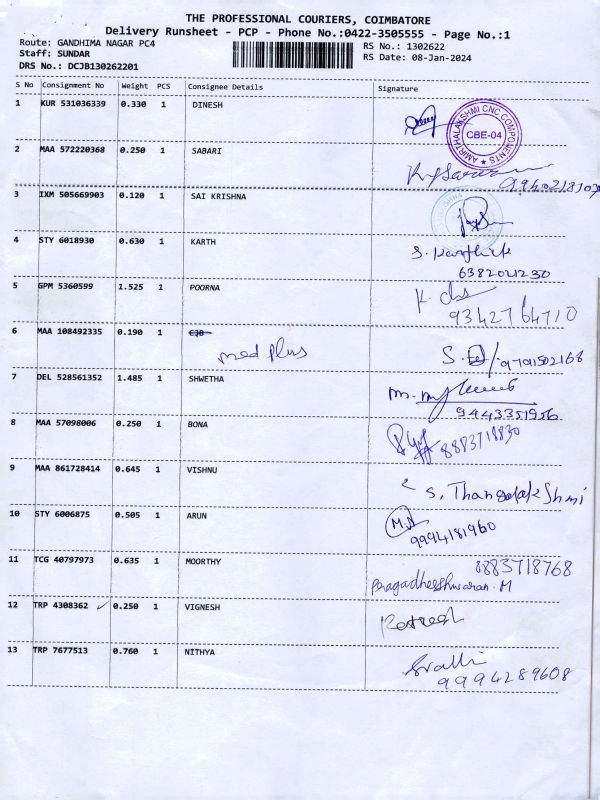 THE PROFESSIONAL COURIERS, COIMBATORE
Delivery Runsheet - PCP - Phone No.:0422-3505555 - Page No.:1
Route: GANDHIMA NAGAR PC4
Staff: SUNDAR
DRS No.: DCJB130262201
RS No.: 1302622
RS Date: 08-Jan-2024
S No Consignment No Weight PCS Consignee Details Signature
1 KUR 531036339 0.330 1 DINESH
AMIRTHALAKSHMI CNC COMPONENTS
CBE-04
2 MAA 572220368 0.250 1 SABARI
3 IXM 505669903 0.120 1 SAI KRISHNA
4 STY 6018930 0.630 1 KARTH
S. Karthick
6382021230
5 GPM 5360599 1.525 1 POORNA
9342764710
6 MAA 108492335 0.190 1 CJB
med plus
9791502168
7 DEL 528561352 1.485 1 SHWETHA
9443351956
8 MAA 57098006 0.250 1 BONA
8883718830
9 MAA 861728414 0.645 1 VISHNU
S. Thangalakshmi
10 STY 6006875 0.505 1 ARUN
M.N
9994181960
11 TCG 40797973 0.635 1 MOORTHY
8883718768
Pragadheeshwaran.M
12 TRP 4308362 ✓ 0.250 1 VIGNESH
13 TRP 7677513 0.760 1 NITHYA
Svalli
9994289608